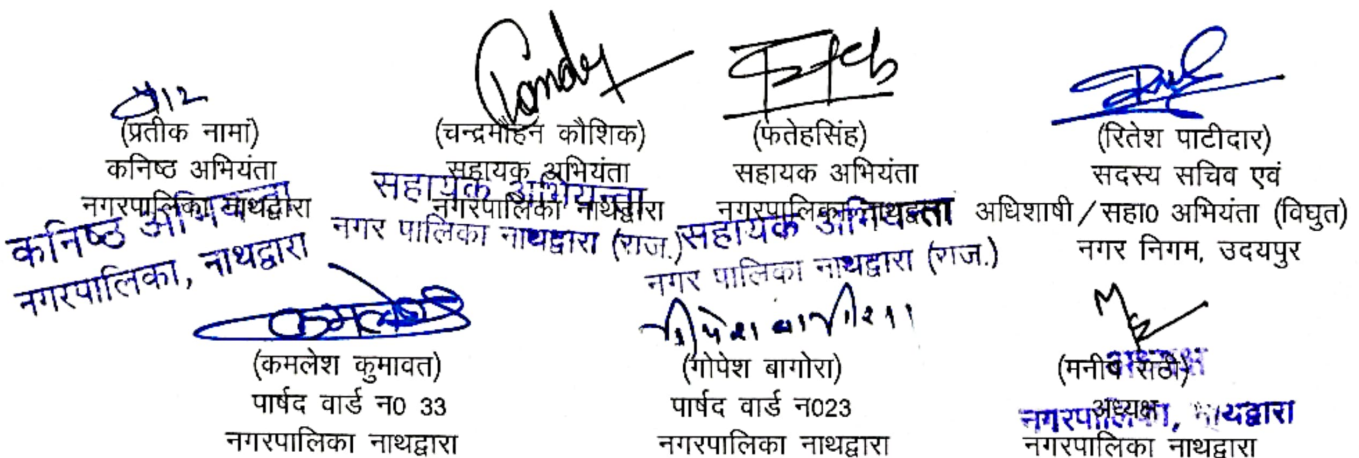 (प्रतीक नामा)
कनिष्ठ अभियंता
नगरपालिका नाथद्वारा
कनिष्ठ अभियन्ता
नगरपालिका, नाथद्वारा
(चन्द्रमोहन कौशिक)
सहायक अभियंता
नगरपालिका नाथद्वारा
सहायक अभियन्ता
नगर पालिका नाथद्वारा (राज.)
(फतेहसिंह)
सहायक अभियंता
नगरपालिका नाथद्वारा
सहायक अभियन्ता
नगर पालिका नाथद्वारा (राज.)
(रितेश पाटीदार)
सदस्य सचिव एवं
अधिशाषी/सहा0 अभियंता (विघुत)
नगर निगम, उदयपुर
कमलेश
(कमलेश कुमावत)
पार्षद वार्ड न0 33
नगरपालिका नाथद्वारा
गोपेश बागोरा
(गोपेश बागोरा)
पार्षद वार्ड न023
नगरपालिका नाथद्वारा
(मनीष राठी)
अध्यक्ष
नगरपालिका नाथद्वारा
अध्यक्ष
नगरपालिका, नाथद्वारा